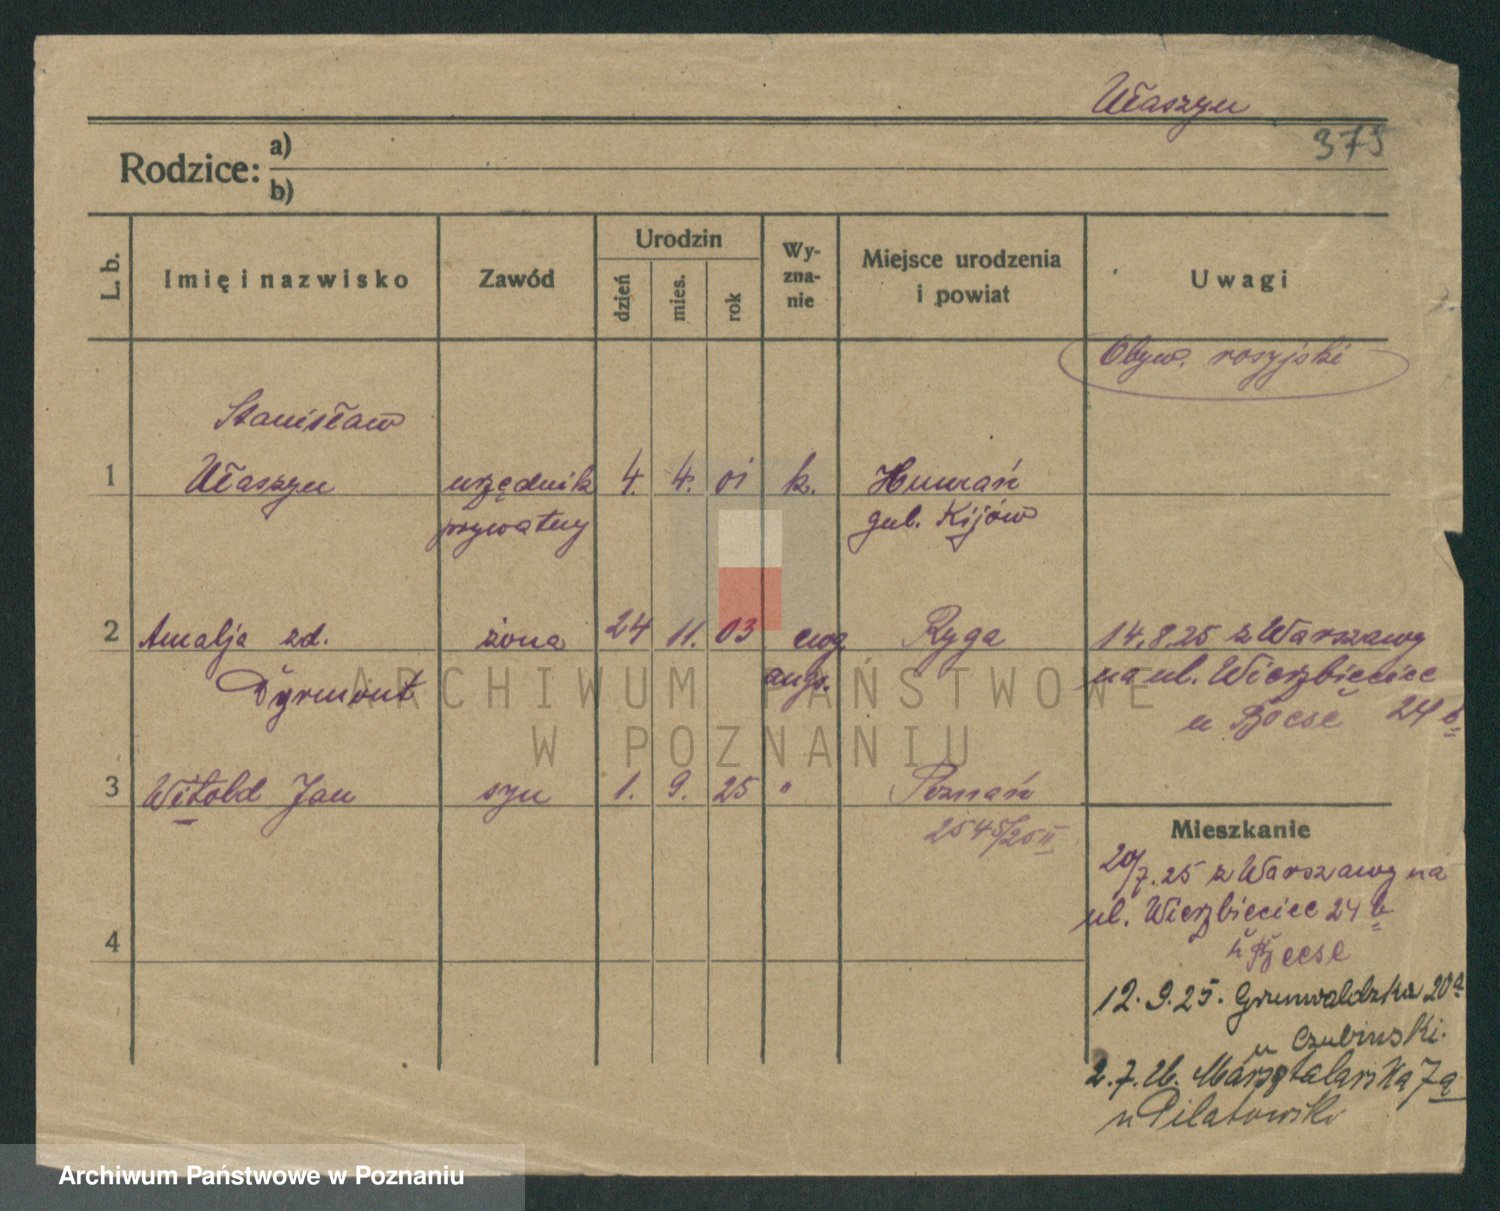 Ułaszyn
375
Rodzice: a)
b)
L. b.
Imię i nazwisko
Zawód
Urodzin
dzień
mies.
rok
Wy-
zna-
nie
Miejsce urodzenia
i powiat
Uwagi
Obyw. rosyjski
Stanisław
1 Ułaszyn urzędnik 4. 4. 01 k. Humań
prywatny gub. Kijów
2 Amalja zd. żona 24 11. 03 ewg Ryga 14.8.25 z Warszawy
Dyrmont augs. na ul. Wierzbięcice
u 24 b
3 Witold Jan syn 1. 9. 25 " Poznań
2545/25 II
Mieszkanie
20/7.25 z Warszawy na
ul. Wierzbięcice 24 b
u
4
12.9.25. Grunwaldzka 20a
u Czubinski.
2.7.26. Marsztalarska 7a
u Pilatowski
ARCHIWUM PAŃSTWOWE
W POZNANIU
Archiwum Państwowe w Poznaniu